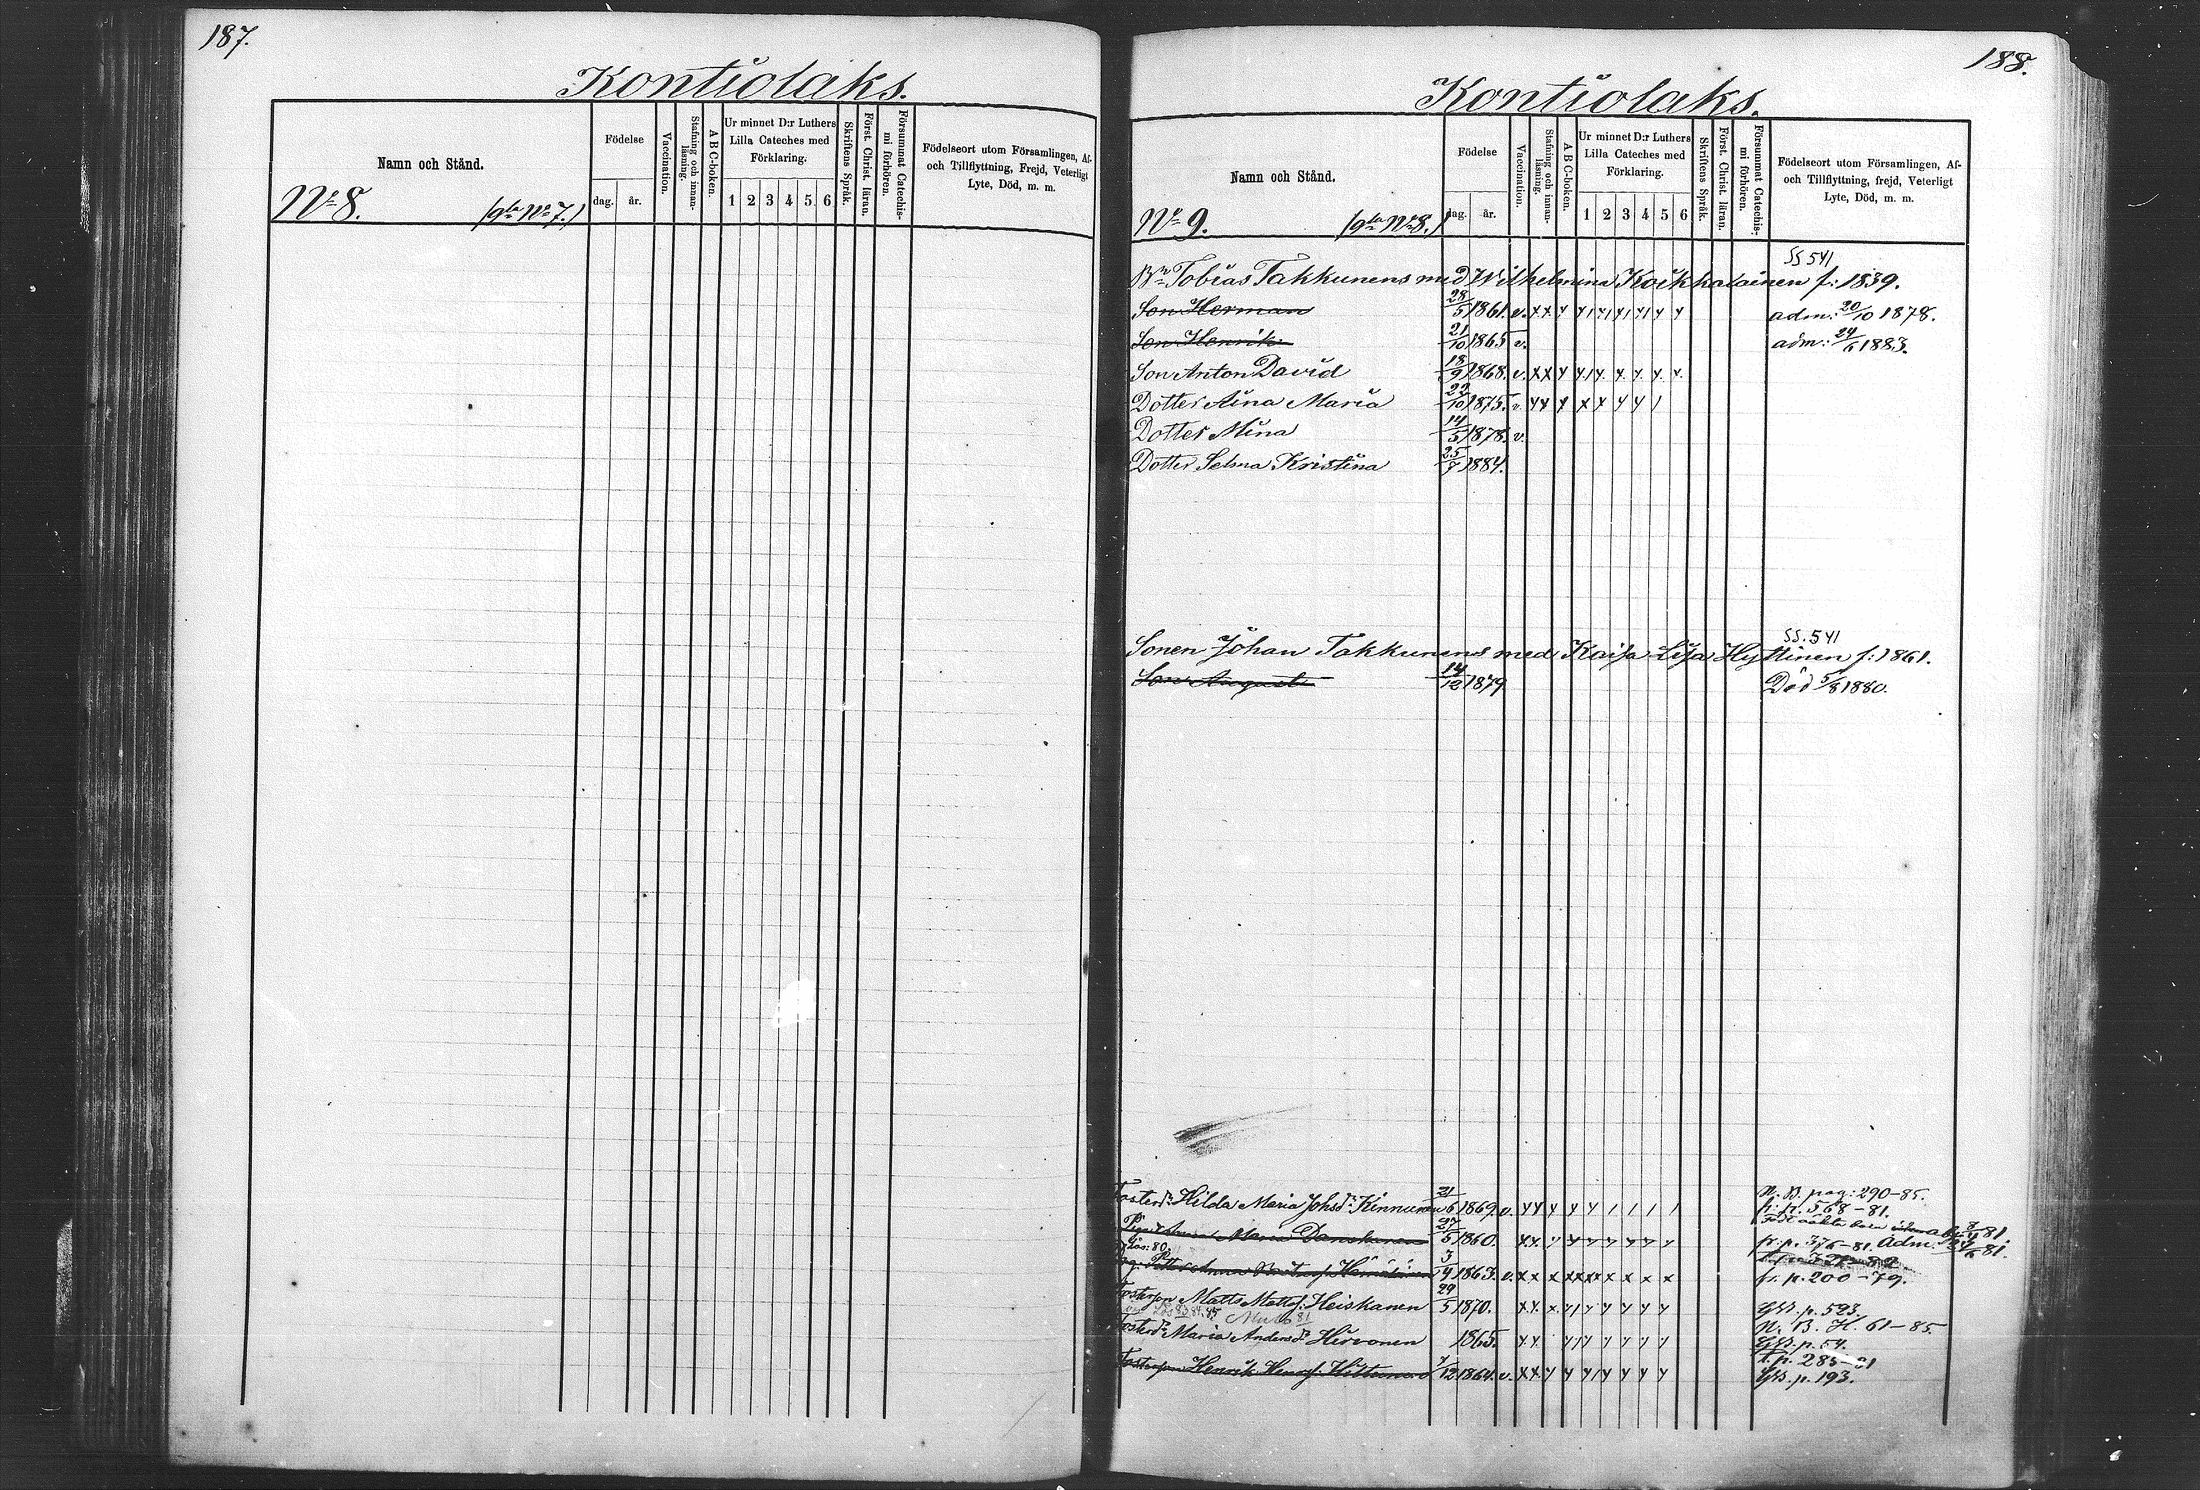 187.
Kontiolaks.
Namn och Stånd.
Födelse
dag.
år.
Vaccination.
Stafning och innanläsning.
A B C-boken.
Ur minnet D:r Luthers
Lilla Cateches med
Förklaring.
1 2 3 4 5 6
Skriftens Språk.
Först. Christ. läran.
Försummat Catechismi förhören.
Födelseort utom Församlingen, Af-
och Tillflyttning, Frejd, Veterligt
Lyte, Död, m. m.
No 8. (gla No 7.)
188.
Kontiolaks.
Namn och Stånd.
Födelse
dag. år.
Vaccination.
Stafning och innanläsning.
A B C-boken.
Ur minnet D:r Luthers
Lilla Cateches med
Förklaring.
1 2 3 4 5 6
Skriftens Språk.
Först. Christ. läran.
Försummat Catechismi förhören.
Födelseort utom Församlingen, Af-
och Tillflyttning, frejd, Veterligt
Lyte, Död, m. m.
No 9. (gla No 8.)
SS 541
Bn Tobias Takkunens med Wilhelmina Koikkalainen f: 1839.
Son Herman 28/5 1861. v. adm: 20/10 1878.
Son Henrik 21/10 1865 v. adm: 24/6 1883.
Son Anton David 18/9 1868. v.
Dotter Aina Maria 22/10 1875. v.
Dotter Mina 14/5 1878. v.
Dotter Selma Kristina 25/7 1884.
SS. 541
Sonen Johan Takkunens med Kaisa Lisa Hyttinen f: 1861.
Son August 14/12 1879 Död 5/8 1880.
N. B. pag: 290-85.
Fosterdr Hilda Maria Johsdr Kinnunen 21/6 1869. v. fr. p. 568-81.
Maria Danskanen 27/5 1860. fr. p. 376-81. Adm.
3/4 1863. v. fr. p. 200-79.
Fosterson Matts Mattss: Heiskanen 29/5 1870. GB. p. 593.
N. B. H. 61-85.
Fosterdr Maria Andersdr Hirvonen 1865. GB. p. 54.
t. p. 285-81
Fosterson Henrik Henrss: Hiltunen 7/12 1864. v. GB. p. 193.